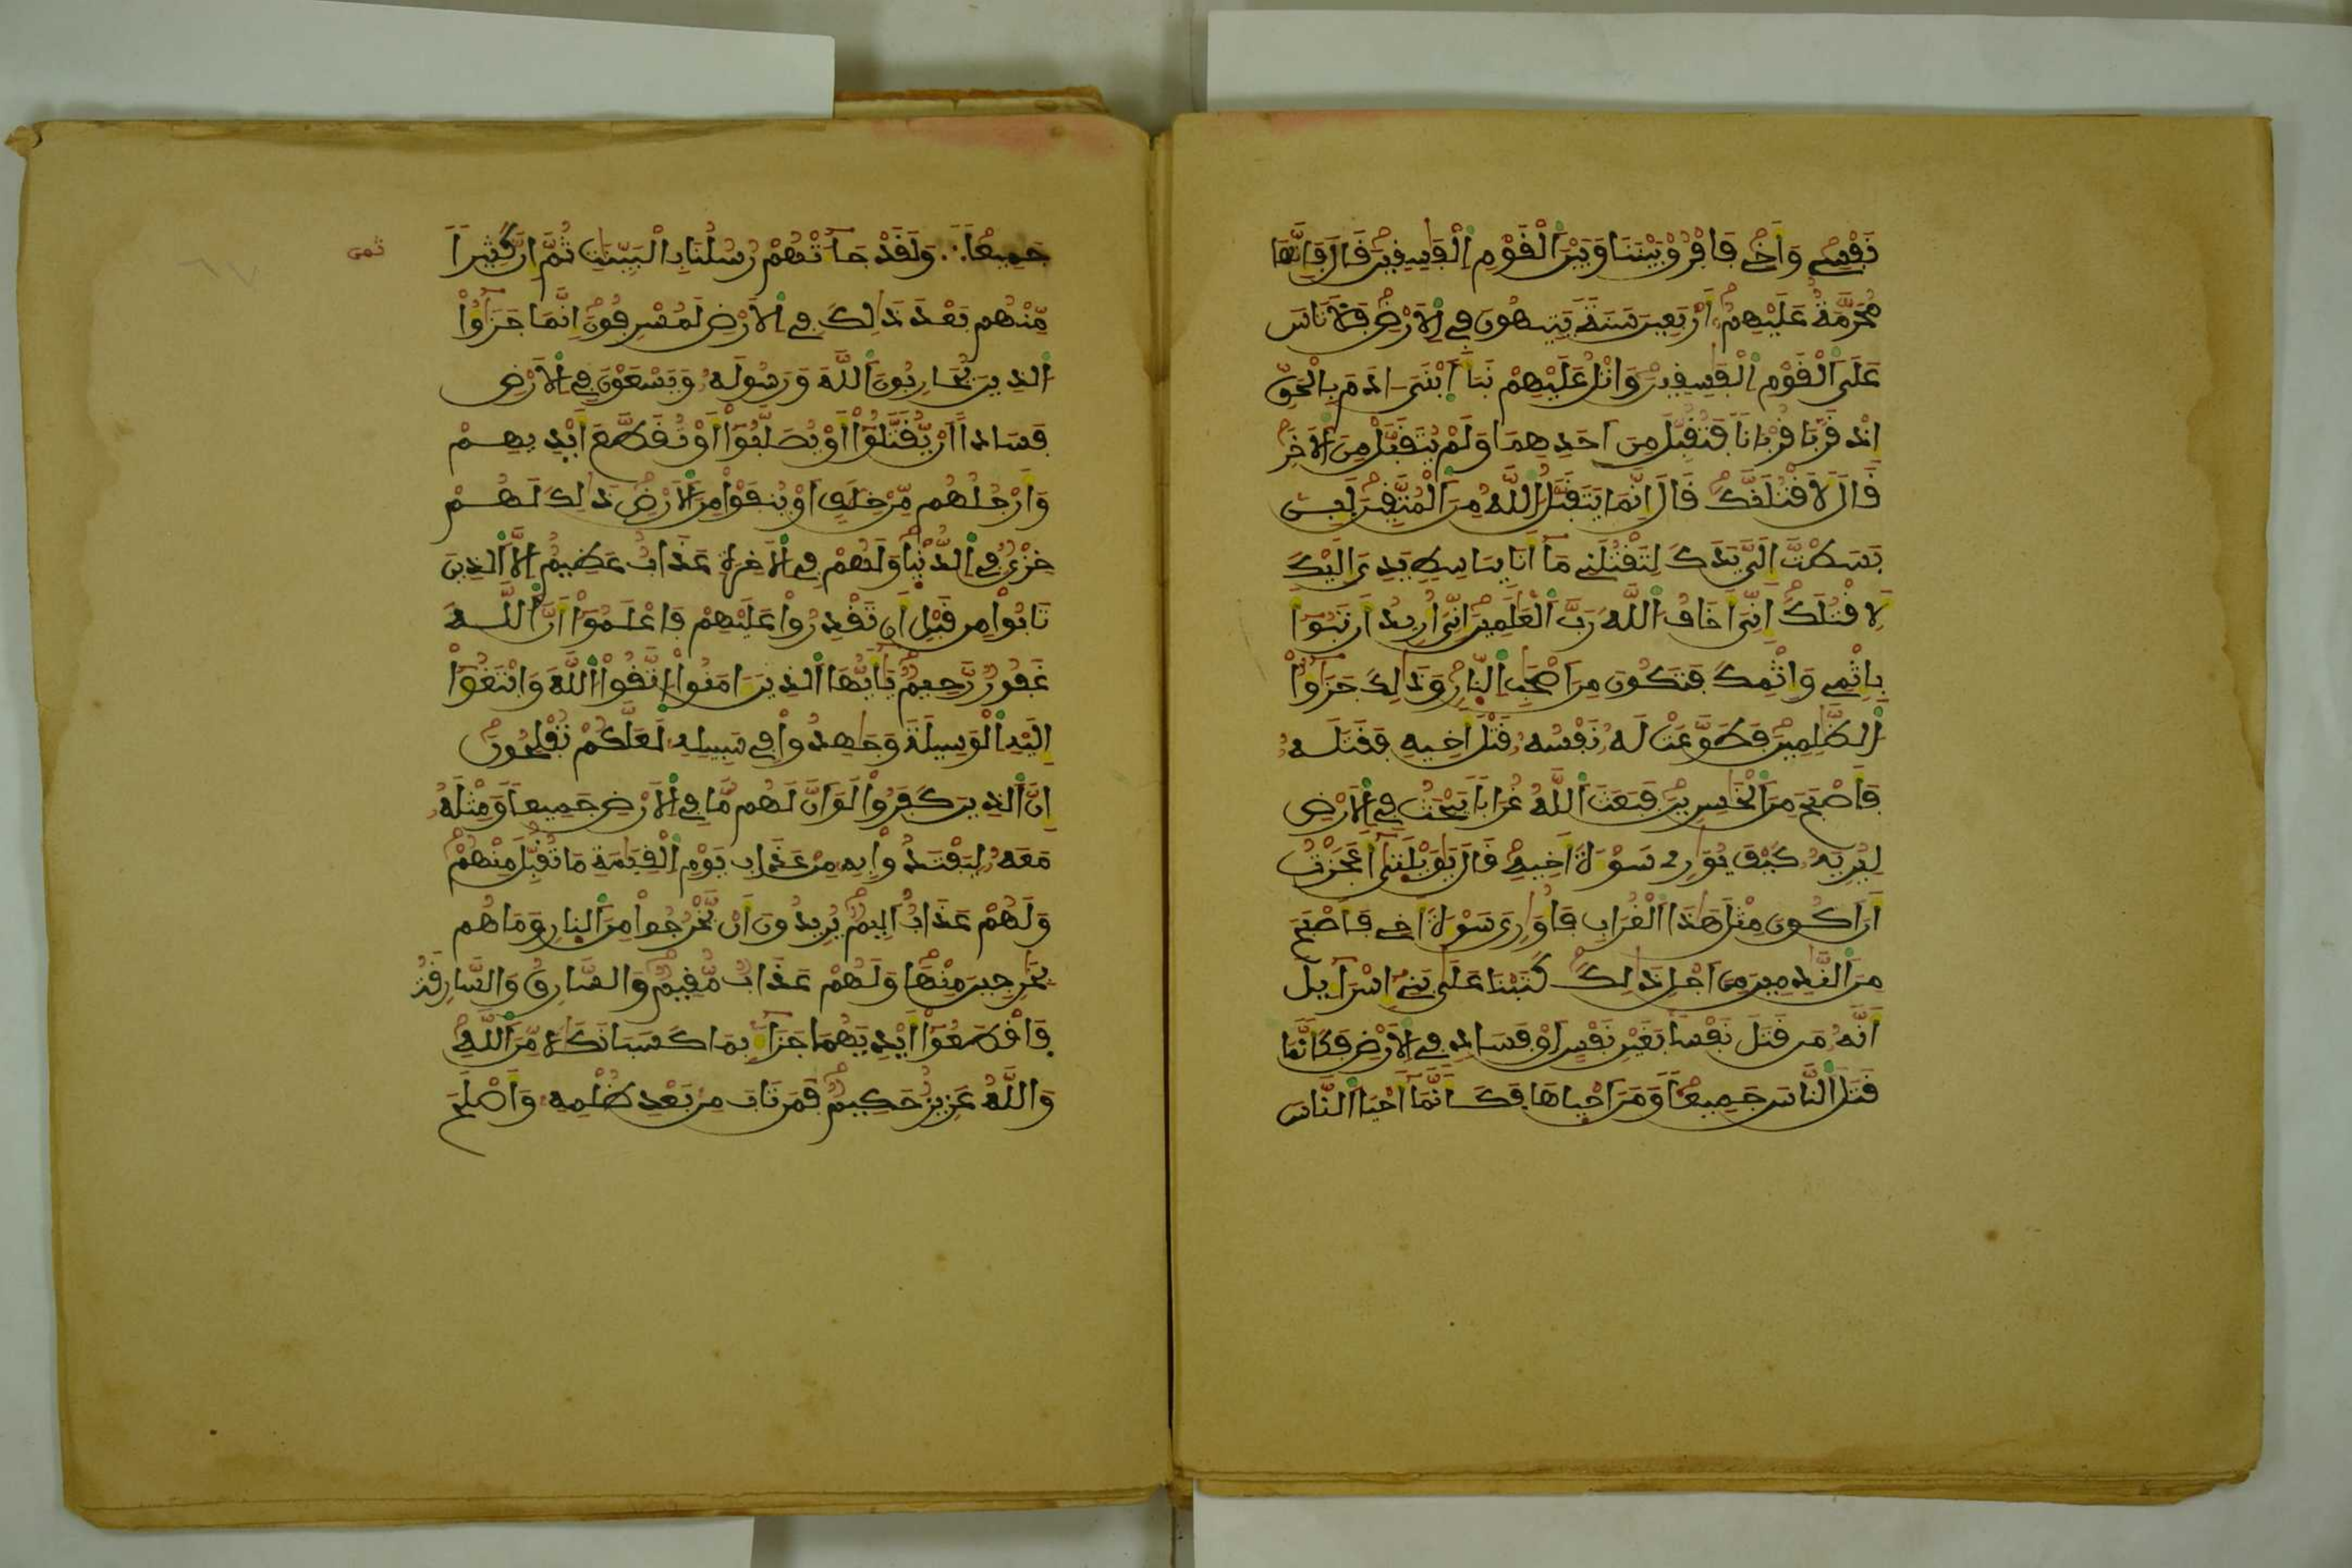 نَفْسِے وَأَخِے فَافْرُقْ بَيْنَنَا وَبَيْنَ اَ۬لْقَوْمِ اِ۬لْفَٰسِقِينَ قَالَ فَإِنَّهَا
مُحَرَّمَةٌ عَلَيْهِمُۥٓ أَرْبَعِينَ سَنَةٗ يَتِيهُونَ فِے اِ۬لَارْضِ فَلَا تَاسَ
عَلَي اَ۬لْقَوْمِ اِ۬لْفَٰسِقِينَ وَاتْلُ عَلَيْهِمْ نَبَأَ اَ۪بْنَيَ ـادَمَ بِالْحَقِّ
إِذْ قَرَّبَا قُرْبَاناٗ فَتُقُبِّلَ مِنَ اَحَدِهِمَا وَلَمْ يُتَقَبَّلْ مِنَ اَ۬لَاخَرِ
قَالَ لَأَقْتُلَنَّكَ قَالَ إِنَّمَا يَتَقَبَّلُ اُ۬للَّهُ مِنَ اَ۬لْمُتَّقِينَ لَئِنۢ
بَسَطتَّ إِلَيَّ يَدَكَ لِتَقْتُلَنِے مَآ أَنَا بِبَاسِطٖ يَدِيَ إِلَيْكَ
لِأَقْتُلَكَ إِنِّيَ أَخَافُ اُ۬للَّهَ رَبَّ اَ۬لْعَٰلَمِينَ إِنِّيَ أُرِيدُ أَن تَبُوٓأَ
بِإِثْمِے وَإِثْمِكَ فَتَكُونَ مِنَ اَصْحَٰبِ اِ۬لنّ۪ارِ وَذَٰلِكَ جَزَٰٓؤُاْ
اُ۬لظَّٰلِمِينَ فَطَوَّعَتْ لَهُۥ نَفْسُهُۥ قَتْلَ أَخِيهِ فَقَتَلَهُۥ
فَأَصْبَحَ مِنَ اَ۬لْخَٰسِرِينَ فَبَعَثَ اَ۬للَّهُ غُرَاباٗ يَبْحَثُ فِے اِ۬لَارْضِ
لِيُرِيَهُۥ كَيْفَ يُوَٰرِے سَوْءَةَ أَخِيهِ قَالَ يَٰوَيْلَت۪يٰٓ أَعَجَزْتُ
أَنَ اَكُونَ مِثْلَ هَٰذَا اَ۬لْغُرَابِ فَأُوَٰرِيَ سَوْءَةَ أَخِے فَأَصْبَحَ
مِنَ اَ۬لنَّٰدِمِينَ مِنَ اَجْلِ ذَٰلِكَ كَتَبْنَا عَلَيٰ بَنِےٓ إِسْرَآءِيلَ
أَنَّهُۥ مَن قَتَلَ نَفْساَۢ بِغَيْرِ نَفْسٍ اَوْ فَسَادٖ فِے اِ۬لَارْضِ فَكَأَنَّمَا
قَتَلَ اَ۬لنَّاسَ جَمِيعاٗ وَمَنَ اَحْي۪اهَا فَكَأَنَّمَآ أَحْيَا اَ۬لنَّاسَ
جَمِيعاٗ ∴ وَلَقَدْ جَآءَتْهُمْ رُسُلُنَا بِالْبَيِّنَٰتِ ثُمَّ إِنَّ كَثِيراٗ ثمن
مِّنْهُم بَعْدَ ذَٰلِكَ فِے اِ۬لَارْضِ لَمُسْرِفُونَ إِنَّمَا جَزَٰٓؤُاْ
اُ۬لذِينَ يُحَارِبُونَ اَ۬للَّهَ وَرَسُولَهُۥ وَيَسْعَوْنَ فِے اِ۬لَارْضِ
فَسَاداً اَنْ يُّقَتَّلُوٓاْ أَوْ يُصَلَّبُوٓاْ أَوْ تُقَطَّعَ أَيْدِيهِمْ
وَأَرْجُلُهُم مِّنْ خِلَٰفٍ اَوْ يُنفَوْاْ مِنَ اَ۬لَارْضِ ذَٰلِكَ لَهُمْ
خِزْيٞ فِے اِ۬لدُّنْي۪ا وَلَهُمْ فِے اِ۬لَاخِرَةِ عَذَابٌ عَظِيمٌ اِلَّا اَ۬لذِينَ
تَابُواْ مِن قَبْلِ أَن تَقْدِرُواْ عَلَيْهِمْ فَاعْلَمُوٓاْ أَنَّ اَ۬للَّهَ
غَفُورٞ رَّحِيمٞ يَٰٓأَيُّهَا اَ۬لذِينَ ءَامَنُواْ اُ۪تَّقُواْ اُ۬للَّهَ وَابْتَغُوٓاْ
إِلَيْهِ اِ۬لْوَسِيلَةَ وَجَٰهِدُواْ فِے سَبِيلِهِۦ لَعَلَّكُمْ تُفْلِحُونَ
إِنَّ اَ۬لذِينَ كَفَرُواْ لَوَ اَنَّ لَهُم مَّا فِے اِ۬لَارْضِ جَمِيعاٗ وَمِثْلَهُۥ
مَعَهُۥ لِيَفْتَدُواْ بِهِۦ مِنْ عَذَابِ يَوْمِ اِ۬لْقِيَٰمَةِ مَا تُقُبِّلَ مِنْهُمْ
وَلَهُمْ عَذَابٌ اَلِيمٞ يُرِيدُونَ أَنْ يَّخْرُجُواْ مِنَ اَ۬لنّ۪ارِ وَمَا هُم
بِخَٰرِجِينَ مِنْهَا وَلَهُمْ عَذَابٞ مُّقِيمٞ وَالسَّارِقُ وَالسَّارِقَةُ
فَاقْطَعُوٓاْ أَيْدِيَهُمَا جَزَآءَۢ بِمَا كَسَبَا نَكَٰلاٗ مِّنَ اَ۬للَّهِ
وَاللَّهُ عَزِيزٌ حَكِيمٞ فَمَن تَابَ مِنۢ بَعْدِ ظُلْمِهِۦ وَأَصْلَحَ